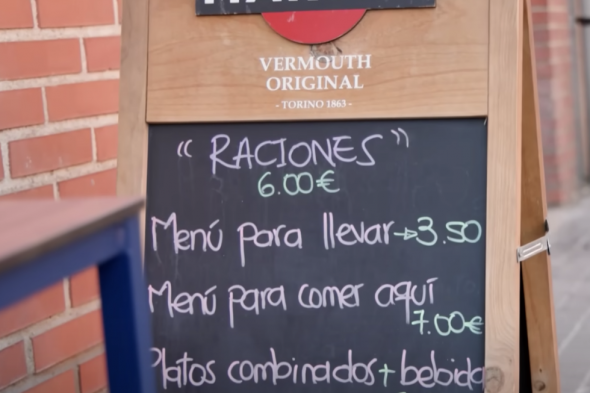 VERMOUTH
ORIGINAL
- TORINO 1863 -
“RACIONES”
6.00€
Menú para llevar→3.50
Menú para comer aquí
7.00€
Platos combinados + bebida